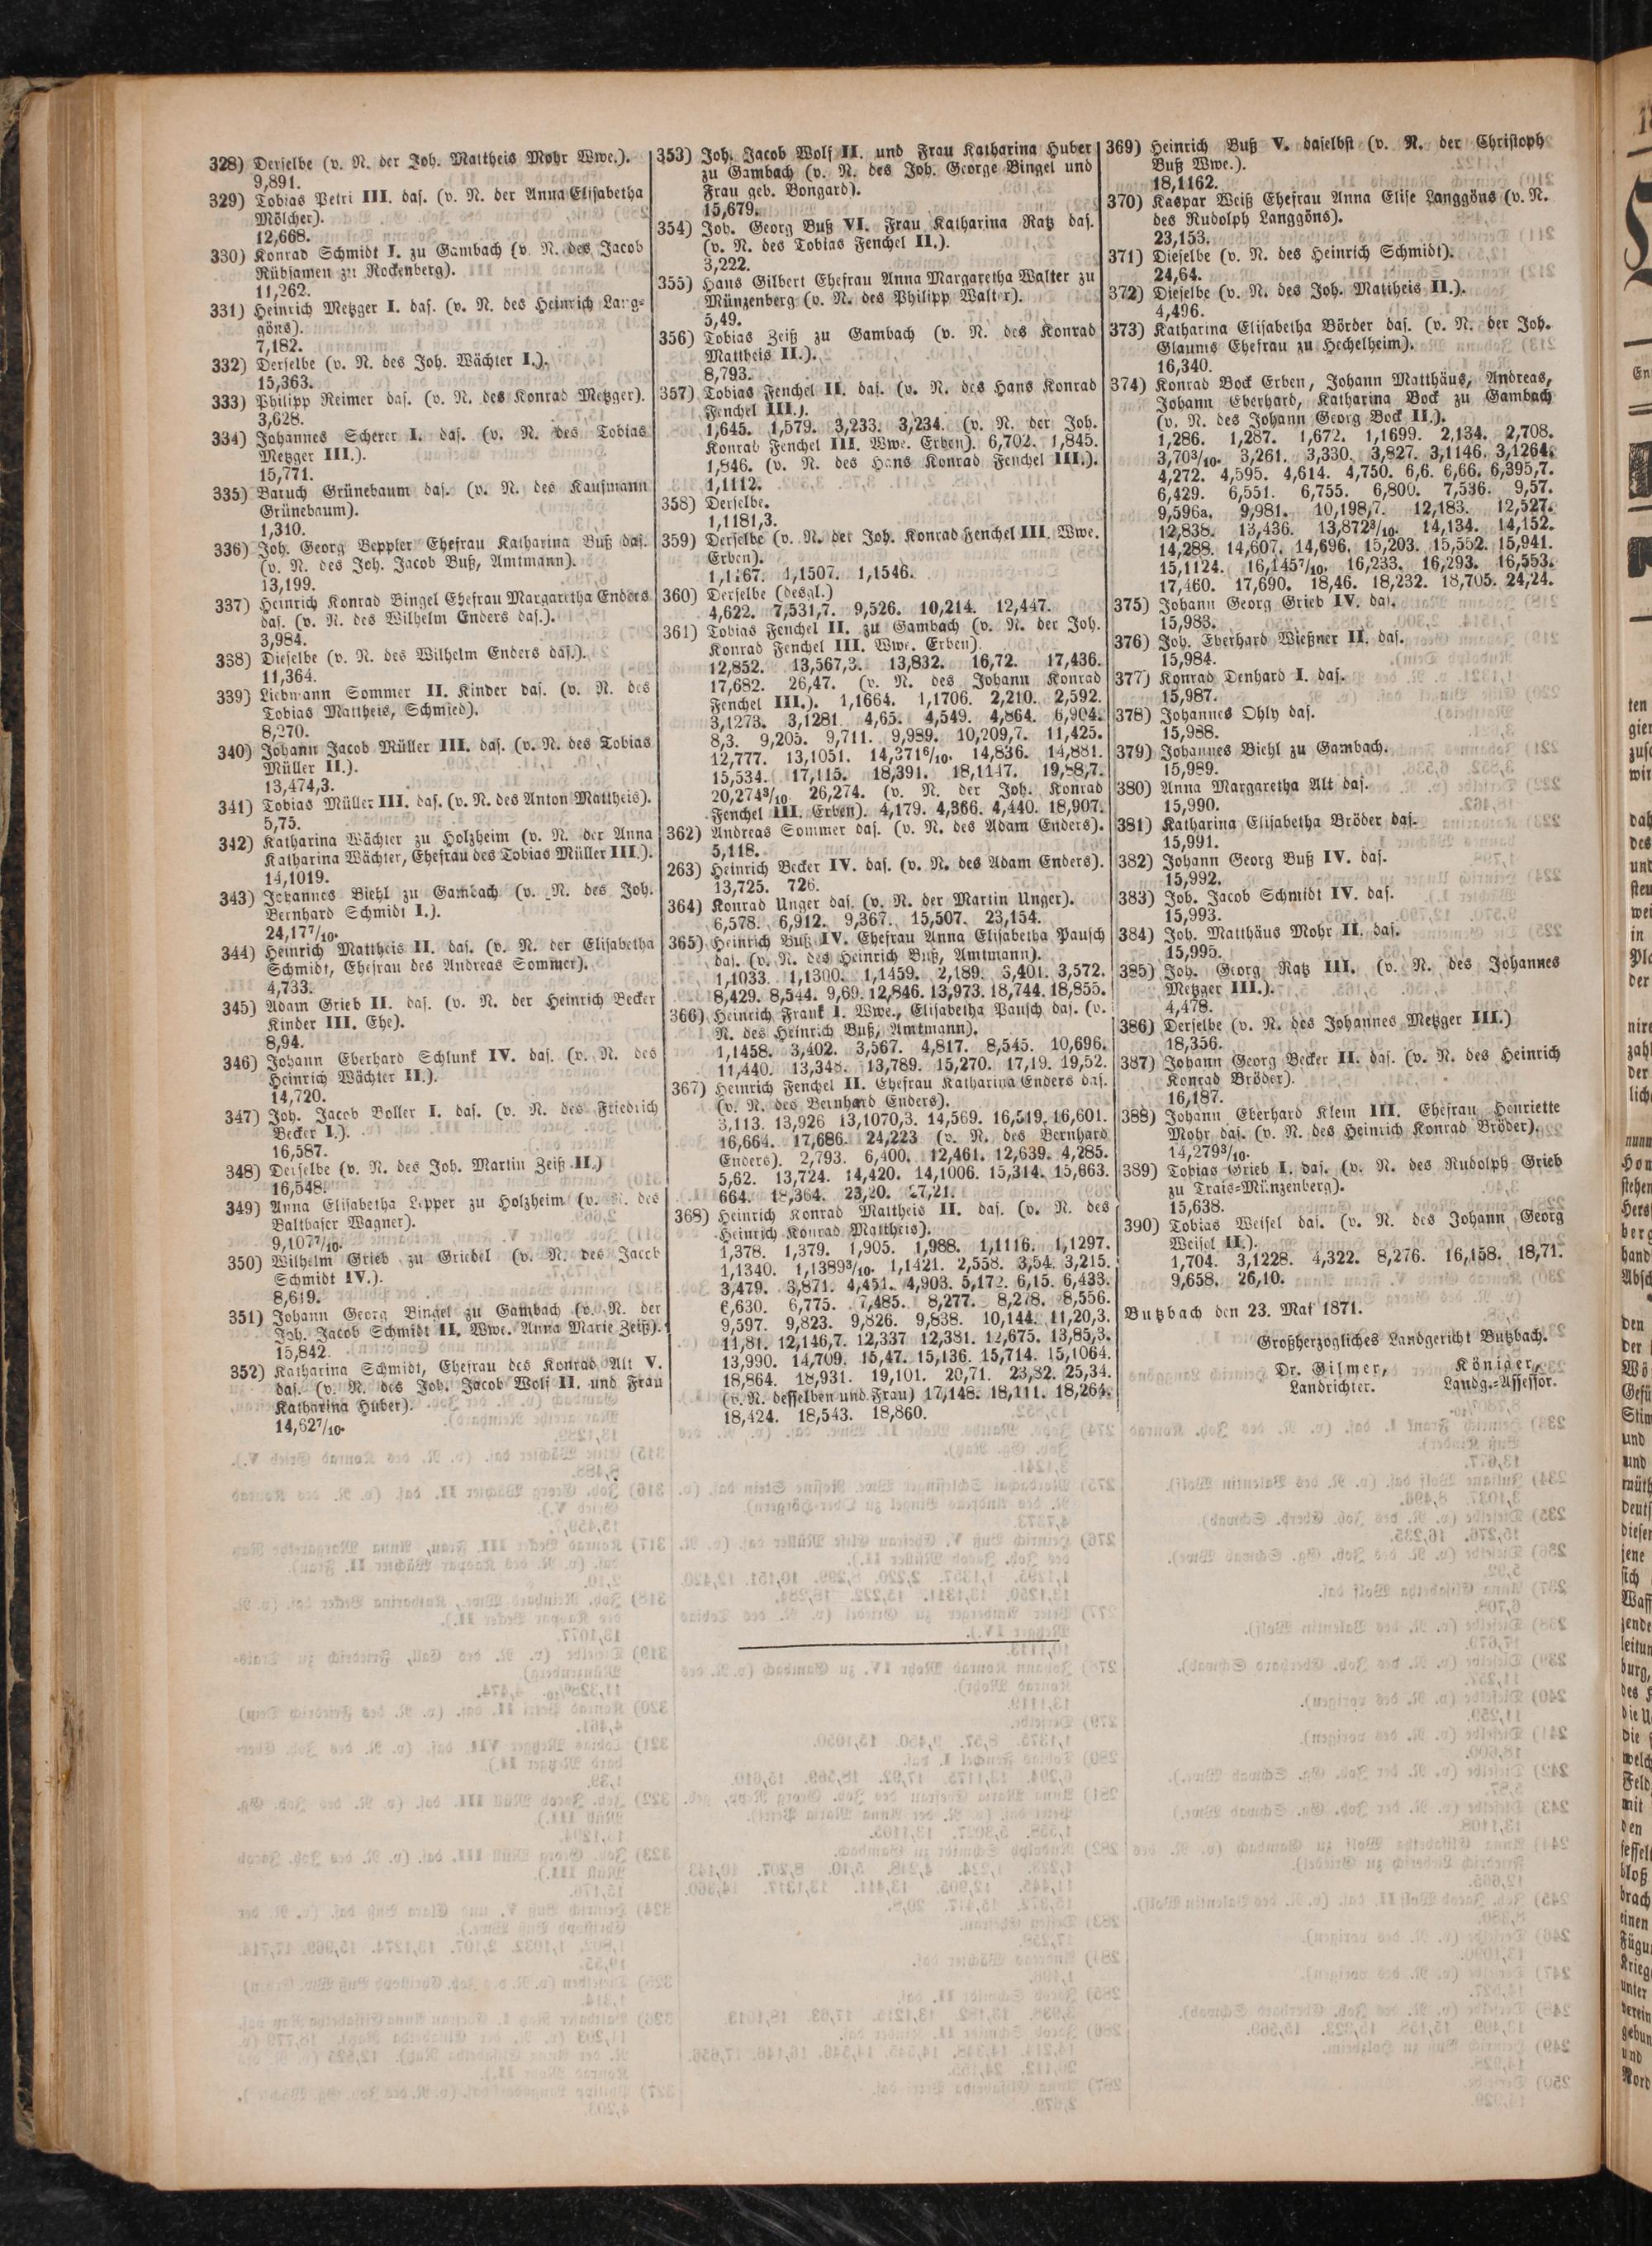 328) Derselbe (v. N. der Joh. Mattheis Mohr Wwe.).
9,891.
329) Tobias Petri III. das. (v. N. der Anna Elisabetha
Mölcher).
12,668.
330) Konrad Schmidt I. zu Gambach (v. N. des Jacob
Rübsamen zu Rockenberg).
11,262.
331) Heinrich Metzger I. das. (v. N. des Heinrich Lang-
göns).
7,182.
332) Derselbe (v. N. des Joh. Wächter I.).
15,363.
333) Philipp Reimer das. (v. N. des Konrad Metzger).
3,628.
334) Johannes Scherer I. das. (v. N. des Tobias
Metzger III.).
15,771.
335) Baruch Grünebaum das. (v. N. des Kaufmann
Grünebaum).
1,310.
336) Joh. Georg Beppler Ehefrau Katharina Buß das.
(v. N. des Joh. Jacob Buß, Amtmann).
13,199.
337) Heinrich Konrad Bingel Ehefrau Margaretha Enders
das. (v. N. des Wilhelm Enders das.).
3,984.
338) Dieselbe (v. N. des Wilhelm Enders das.).
11,364.
339) Liebmann Sommer II. Kinder das. (v. N. des
Tobias Mattheis, Schmied).
8,270.
340) Johann Jacob Müller III. das. (v. N. des Tobias
Müller II.).
13,474,3.
341) Tobias Müller III. das. (v. N. des Anton Mattheis).
5,75.
342) Katharina Wächter zu Holzheim (v. N. der Anna
Katharina Wächter, Ehefrau des Tobias Müller III.).
14,1019.
343) Johannes Biehl zu Gambach (v. N. des Joh.
Bernhard Schmidt I.).
24,17⁷/₁₀.
344) Heinrich Mattheis II. das. (v. N. der Elisabetha
Schmidt, Ehefrau des Andreas Sommer).
4,733.
345) Adam Grieb II. das. (v. N. der Heinrich Becker
Kinder III. Ehe).
8,94.
346) Johann Eberhard Schlunk IV. das. (v. N. des
Heinrich Wächter II.).
14,720.
347) Joh. Jacob Boller I. das. (v. N. des Friedrich
Becker I.).
16,587.
348) Derselbe (v. N. des Joh. Martin Zeiß II.)
16,548.
349) Anna Elisabetha Lepper zu Holzheim (v. N. des
Balthaser Wagner).
9,107⁷/₁₀.
350) Wilhelm Grieb zu Griedel (v. N. des Jacob
Schmidt IV.).
8,619.
351) Johann Georg Bingel zu Gambach (v. N. der
Joh. Jacob Schmidt II. Wwe. Anna Marie Zeiß).
15,842.
352) Katharina Schmidt, Ehefrau des Konrad Alt V.
das. (v. N. des Joh. Jacob Wolf II. und Frau
Katharina Huber).
14,62⁷/₁₀.
353) Joh. Jacob Wolf II. und Frau Katharina Huber
zu Gambach (v. N. des Joh. George Bingel und
Frau geb. Bongard).
15,679.
354) Joh. Georg Buß VI. Frau Katharina Ratz das.
(v. N. des Tobias Fenchel II.).
3,222.
355) Hans Gilbert Ehefrau Anna Margaretha Walter zu
Münzenberg (v. N. des Philipp Walter).
5,49.
356) Tobias Zeiß zu Gambach (v. N. des Konrad
Mattheis II.).
8,793.
357) Tobias Fenchel II. das. (v. N. des Hans Konrad
Fenchel III.).
1,645. 1,579. 3,233. 3,234. (v. N. der Joh.
Konrad Fenchel III. Wwe. Erben). 6,702. 1,845.
1,846. (v. N. des Hans Konrad Fenchel III.).
1,1112.
358) Derselbe.
1,1181,3.
359) Derselbe (v. N. der Joh. Konrad Fenchel III. Wwe.
Erben).
1,1167. 1,1507. 1,1546.
360) Derselbe (desgl.)
4,622. 7,531,7. 9,526. 10,214. 12,447.
361) Tobias Fenchel II. zu Gambach (v. N. der Joh.
Konrad Fenchel III. Wwe. Erben).
12,852. 13,567,3. 13,832. 16,72. 17,436.
17,682. 26,47. (v. N. des Johann Konrad
Fenchel III.). 1,1664. 1,1706. 2,210. 2,592.
3,1273. 3,1281. 4,65. 4,549. 4,864. 6,904.
8,3. 9,205. 9,711. 9,989. 10,209,7. 11,425.
12,777. 13,1051. 14,371⁶/₁₀. 14,836. 14,881.
15,534. 17,115. 18,391. 18,1147. 19,88,7.
20,274³/₁₀. 26,274. (v. N. der Joh. Konrad
Fenchel III. Erben). 4,179. 4,366. 4,440. 18,907.
362) Andreas Sommer das. (v. N. des Adam Enders).
5,118.
263) Heinrich Becker IV. das. (v. N. des Adam Enders).
13,725. 726.
364) Konrad Unger das. (v. N. der Martin Unger).
6,578. 6,912. 9,367. 15,507. 23,154.
365) Heinrich Buß IV. Ehefrau Anna Elisabetha Pausch
das. (v. N. des Heinrich Buß, Amtmann).
1,1033. 1,1300. 1,1459. 2,189. 3,401. 3,572.
8,429. 8,544. 9,69. 12,846. 13,973. 18,744. 18,855.
366) Heinrich Frank I. Wwe., Elisabetha Pausch das. (v.
N. des Heinrich Buß, Amtmann).
1,1458. 3,402. 3,567. 4,817. 8,545. 10,696.
11,440. 13,348. 13,789. 15,270. 17,19. 19,52.
367) Heinrich Fenchel II. Ehefrau Katharina Enders das.
(v. N. des Bernhard Enders).
3,113. 13,926 13,1070,3. 14,569. 16,519. 16,601.
16,664. 17,686. 24,223 (v. N. des Bernhard
Enders). 2,793. 6,400. 12,461. 12,639. 4,285.
5,62. 13,724. 14,420. 14,1006. 15,314. 15,663.
664. 18,364. 23,20. 27,21.
368) Heinrich Konrad Mattheis II. das. (v. N. des
Heinrich Konrad Mattheis).
1,378. 1,379. 1,905. 1,988. 1,1116. 1,1297.
1,1340. 1,1389³/₁₀. 1,1421. 2,558. 3,54. 3,215.
3,479. 3,871. 4,451. 4,903. 5,172. 6,15. 6,433.
6,630. 6,775. 7,485. 8,277. 8,278. 8,556.
9,597. 9,823. 9,826. 9,838. 10,144. 11,20,3.
11,81. 12,146,7. 12,337 12,381. 12,675. 13,85,3.
13,990. 14,709. 15,47. 15,136. 15,714. 15,1064.
18,864. 18,931. 19,101. 20,71. 23,82. 25,34.
(v. N. desselben und Frau) 17,148. 18,111. 18,264.
18,424. 18,543. 18,860.
369) Heinrich Buß V. daselbst (v. N. der Christoph
Buß Wwe.).
18,1162.
370) Kaspar Weiß Ehefrau Anna Elise Langgöns (v. N.
des Rudolph Langgöns).
23,153.
371) Dieselbe (v. N. des Heinrich Schmidt).
24,64.
372) Dieselbe (v. N. des Joh. Mattheis II.).
4,496.
373) Katharina Elisabetha Börder das. (v. N. der Joh.
Glaums Ehefrau zu Hechelheim).
16,340.
374) Konrad Bock Erben, Johann Matthäus, Andreas,
Johann Eberhard, Katharina Bock zu Gambach
(v. N. des Johann Georg Bock II.).
1,286. 1,287. 1,672. 1,1699. 2,134. 2,708.
3,70³/₁₀. 3,261. 3,330. 3,827. 3,1146. 3,1264.
4,272. 4,595. 4,614. 4,750. 6,6. 6,66. 6,395,7.
6,429. 6,551. 6,755. 6,800. 7,536. 9,57.
9,596a. 9,981. 10,198,7. 12,183. 12,527.
12,838. 13,436. 13,872³/₁₀. 14,134. 14,152.
14,288. 14,607. 14,696. 15,203. 15,552. 15,941.
15,1124. 16,145⁷/₁₀. 16,233. 16,293. 16,553.
17,460. 17,690. 18,46. 18,232. 18,705. 24,24.
375) Johann Georg Grieb IV. das.
15,983.
376) Joh. Eberhard Wießner II. das.
15,984.
377) Konrad Denhard I. das.
15,987.
378) Johannes Ohly das.
15,988.
379) Johannes Biehl zu Gambach.
15,989.
380) Anna Margaretha Alt das.
15,990.
381) Katharina Elisabetha Bröder das.
15,991.
382) Johann Georg Buß IV. das.
15,992.
383) Joh. Jacob Schmidt IV. das.
15,993.
384) Joh. Matthäus Mohr II. das.
15,995.
385) Joh. Georg Ratz III. (v. N. des Johannes
Metzger III.).
4,478.
386) Derselbe (v. N. des Johannes Metzger III.)
18,356.
387) Johann Georg Becker II. das. (v. N. des Heinrich
Konrad Bröder).
16,187.
388) Johann Eberhard Klein III. Ehefrau Henriette
Mohr das. (v. N. des Heinrich Konrad Bröder).
14,279³/₁₀.
389) Tobias Grieb I. das. (v. N. des Rudolph Grieb
zu Trais-Münzenberg).
15,638.
390) Tobias Weisel das. (v. N. des Johann Georg
Weisel II.).
1,704. 3,1228. 4,322. 8,276. 16,158. 18,71.
9,658. 26,10.
Butzbach den 23. Mai 1871.
Großherzogliches Landgericht Butzbach.
Dr. Gilmer, Königer,
Landrichter. Landg.-Assessor.